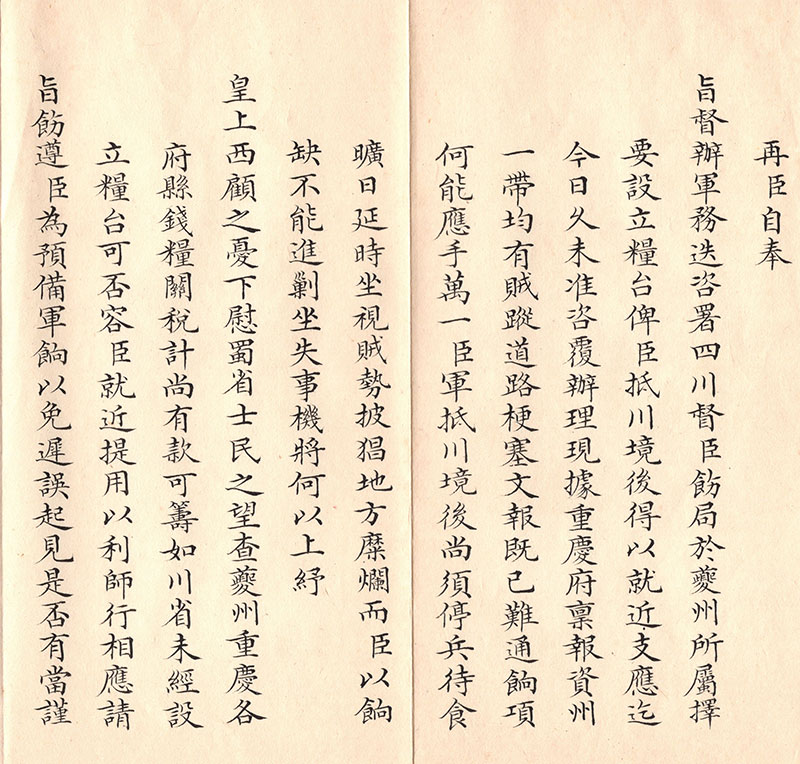 再臣自奉
旨督辦軍務迭咨署四川督臣飭局於夔州所屬擇
要設立糧台俾臣抵川境後得以就近支應迄
今日久未准咨覆辦理現據重慶府稟報資州
一帶均有賊蹤道路梗塞文報既已難通餉項
何能應手萬一臣軍抵川境後尚須停兵待食
曠日延時坐視賊勢披猖地方糜爛而臣以餉
缺不能進剿坐失事機將何以上紓
皇上西顧之憂下慰蜀省士民之望查夔州重慶各
府縣錢糧關稅計尚有款可籌如川省未經設
立糧台可否容臣就近提用以利師行相應請
旨飭遵臣為預備軍餉以免遲誤起見是否有當謹